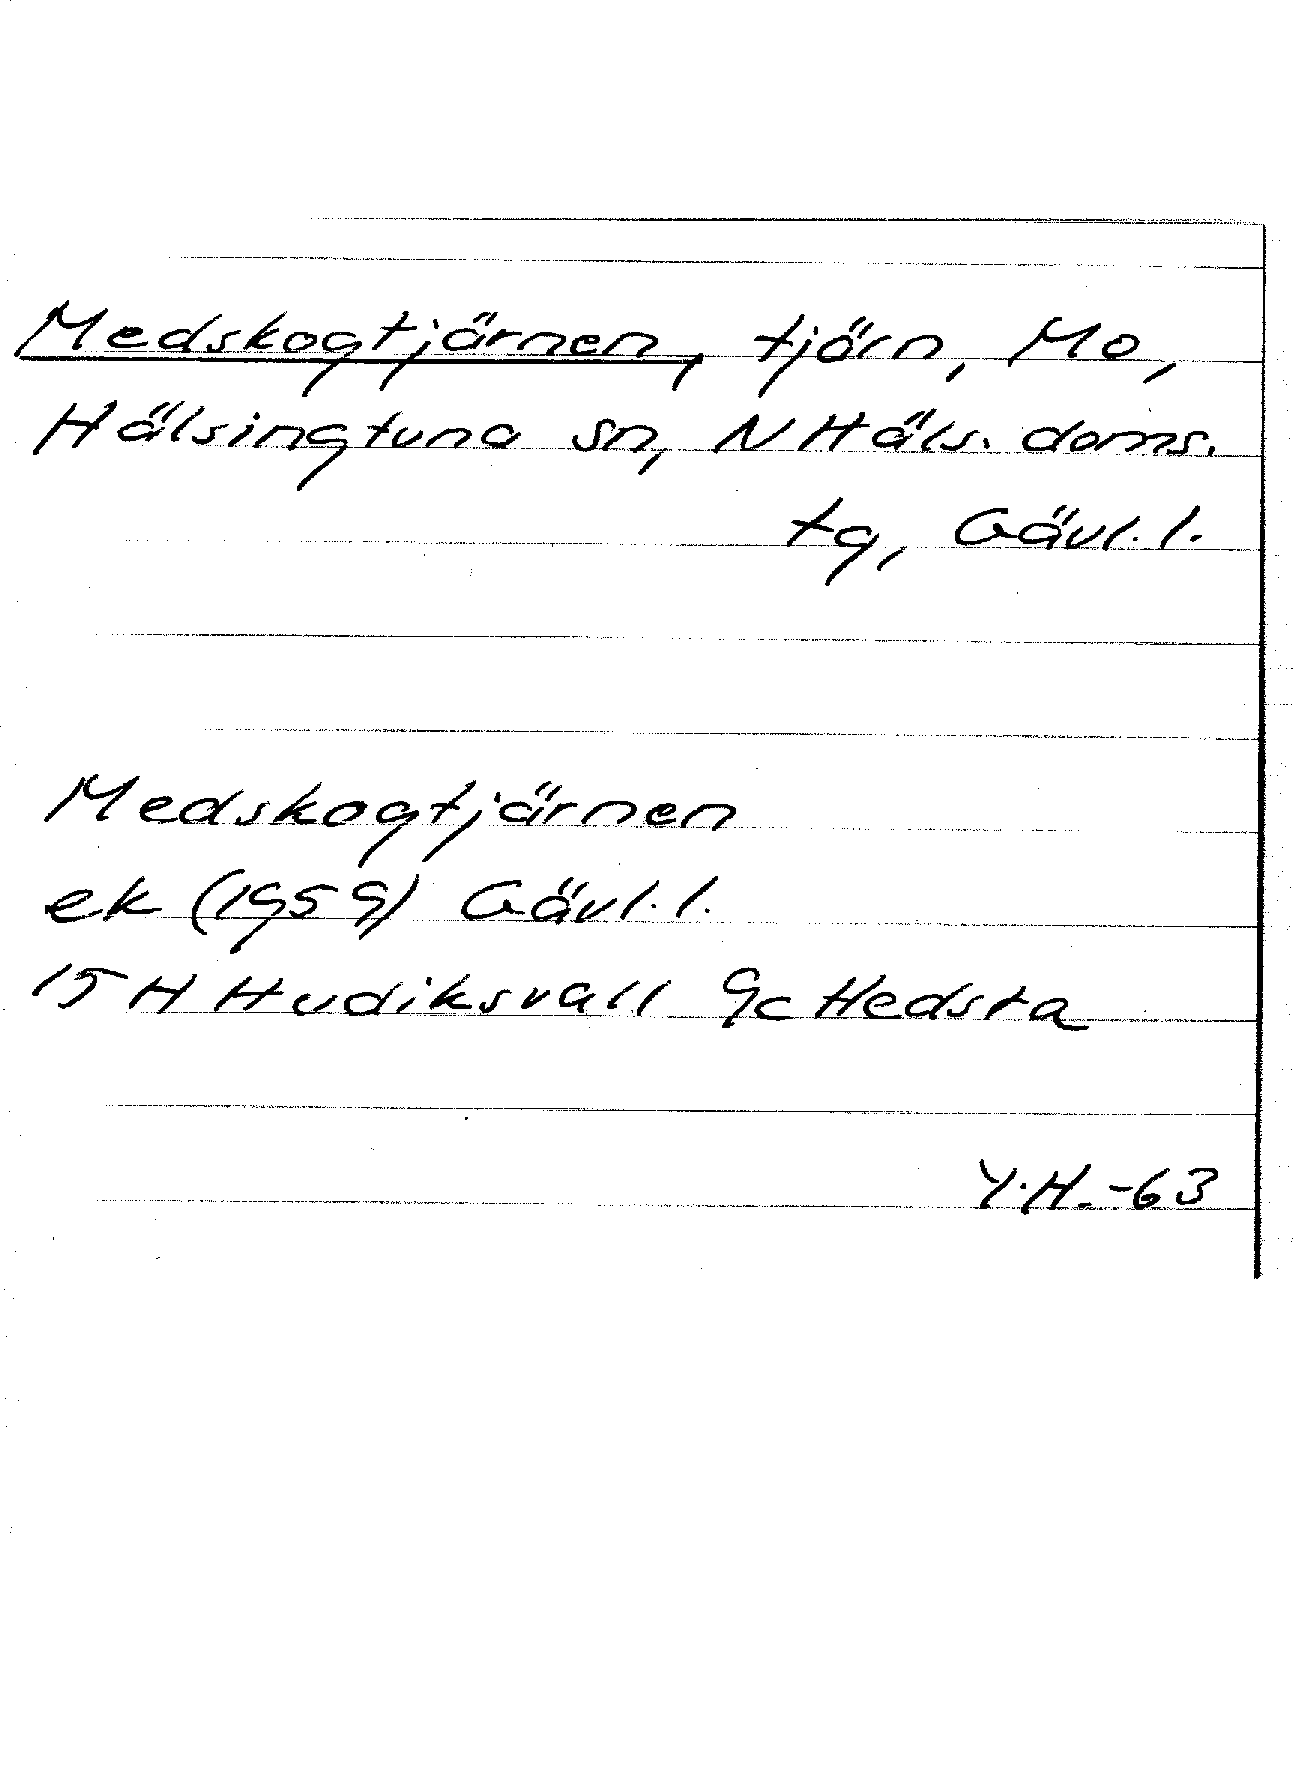 Medskogtjärnen, tjärn, Mo,
Hälsingtuna sn, N Häls. doms.
tg, Gävl.l.
Medskogtjärnen
ek (1959) Gävl.l.
15H Hudiksvall 9c Hedsta
Y.H.-63